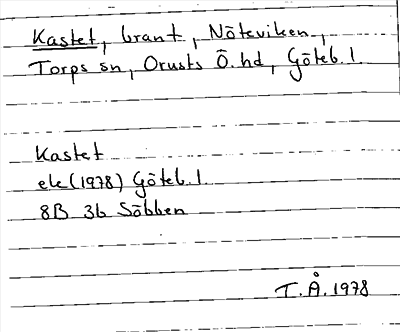 Kastet, brant, Nöteviken,
Torps sn, Orusts Ö. hd, Göteb. l.
Kastet
ek (1978) Göteb. l.
8B 3b Söbben
T. Å. 1978